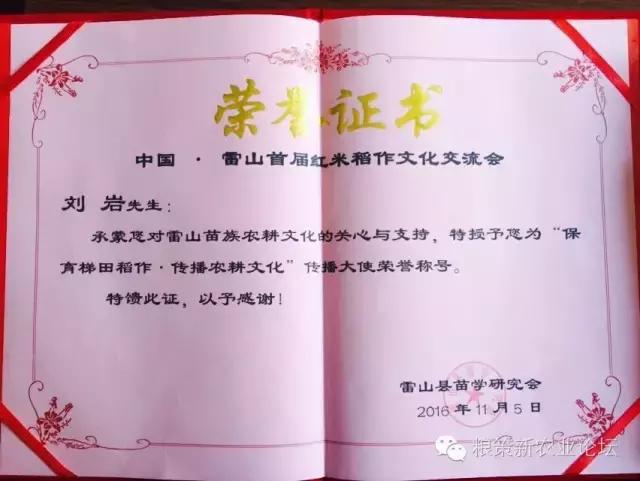 荣誉证书
中国 · 雷山首届红米稻作文化交流会
刘 岩先生：
承蒙您对雷山苗族农耕文化的关心与支持，特授予您为“保
育梯田稻作·传播农耕文化”传播大使荣誉称号。
特馈此证，以予感谢！
雷山县苗学研究会
2016 年 11 月 5 日
粮策新农业论坛